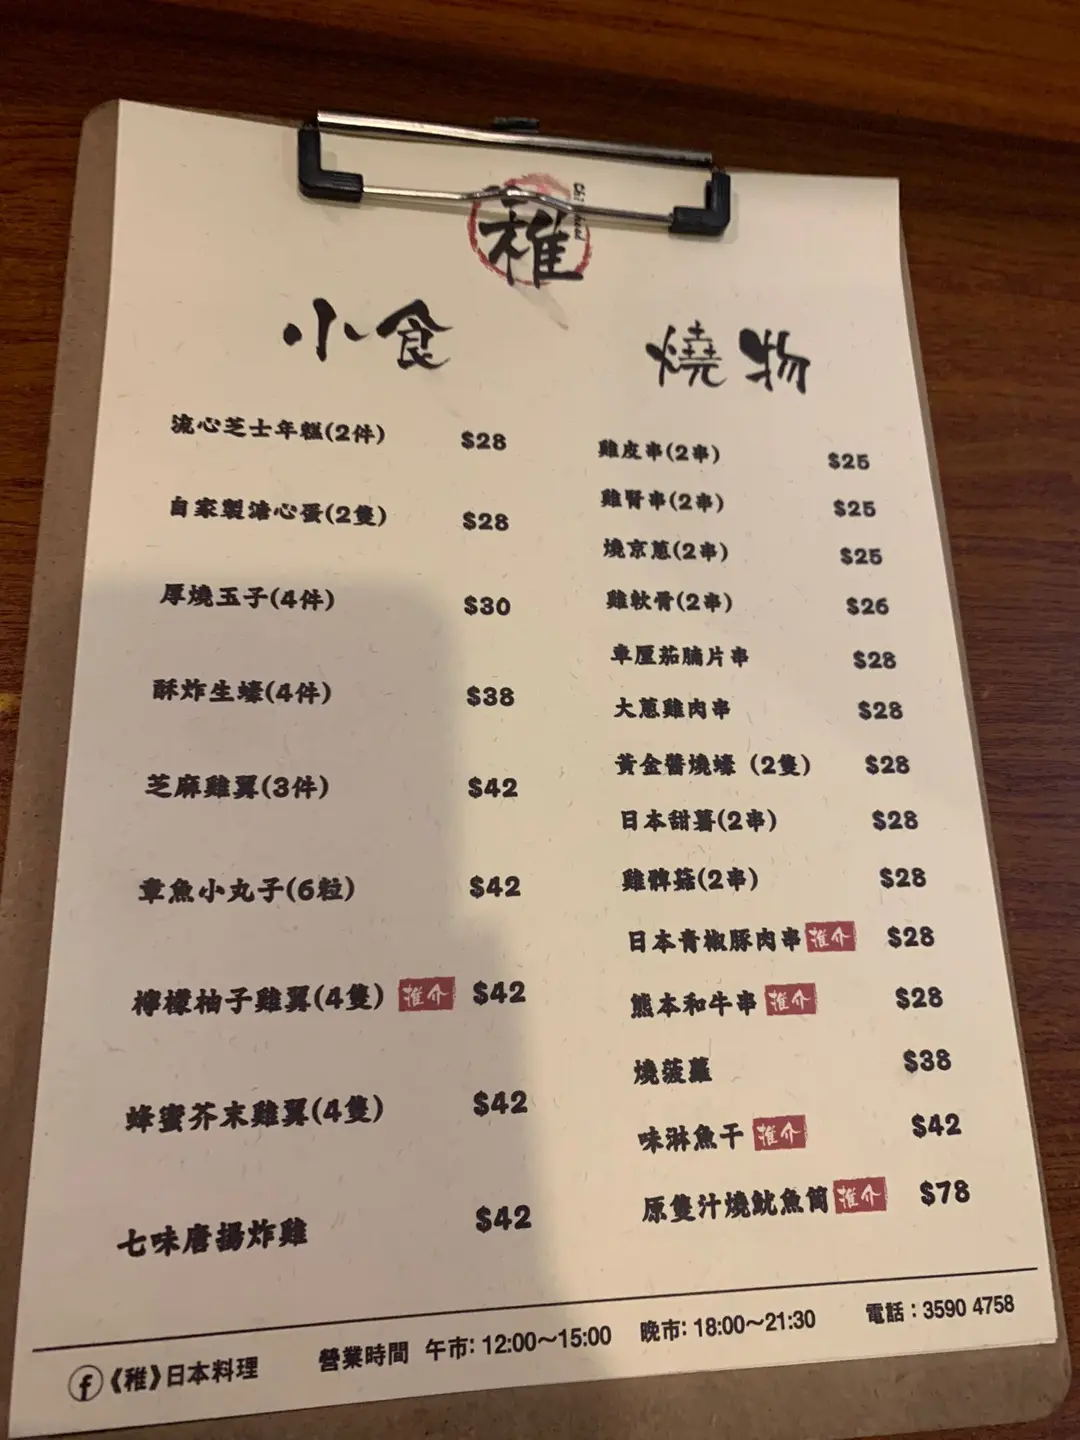 稚
小食
流心芝士年糕(2件) $28
自家製溏心蛋(2隻) $28
厚燒玉子(4件) $30
酥炸生蠔(4件) $38
芝麻雞翼(3件) $42
章魚小丸子(6粒) $42
檸檬柚子雞翼(4隻) 推介 $42
蜂蜜芥末雞翼(4隻) $42
七味唐揚炸雞 $42
燒物
雞皮串(2串) $25
雞腎串(2串) $25
燒京蔥(2串) $25
雞軟骨(2串) $26
車厘茄腩片串 $28
大蔥雞肉串 $28
黃金醬燒蠔 (2隻) $28
日本甜薯(2串) $28
雞髀菇(2串) $28
日本青椒豚肉串 推介 $28
熊本和牛串 推介 $28
燒菠蘿 $38
味淋魚干 推介 $42
原隻汁燒魷魚筒 推介 $78
《稚》日本料理 營業時間 午市: 12:00~15:00 晚市: 18:00~21:30 電話：3590 4758